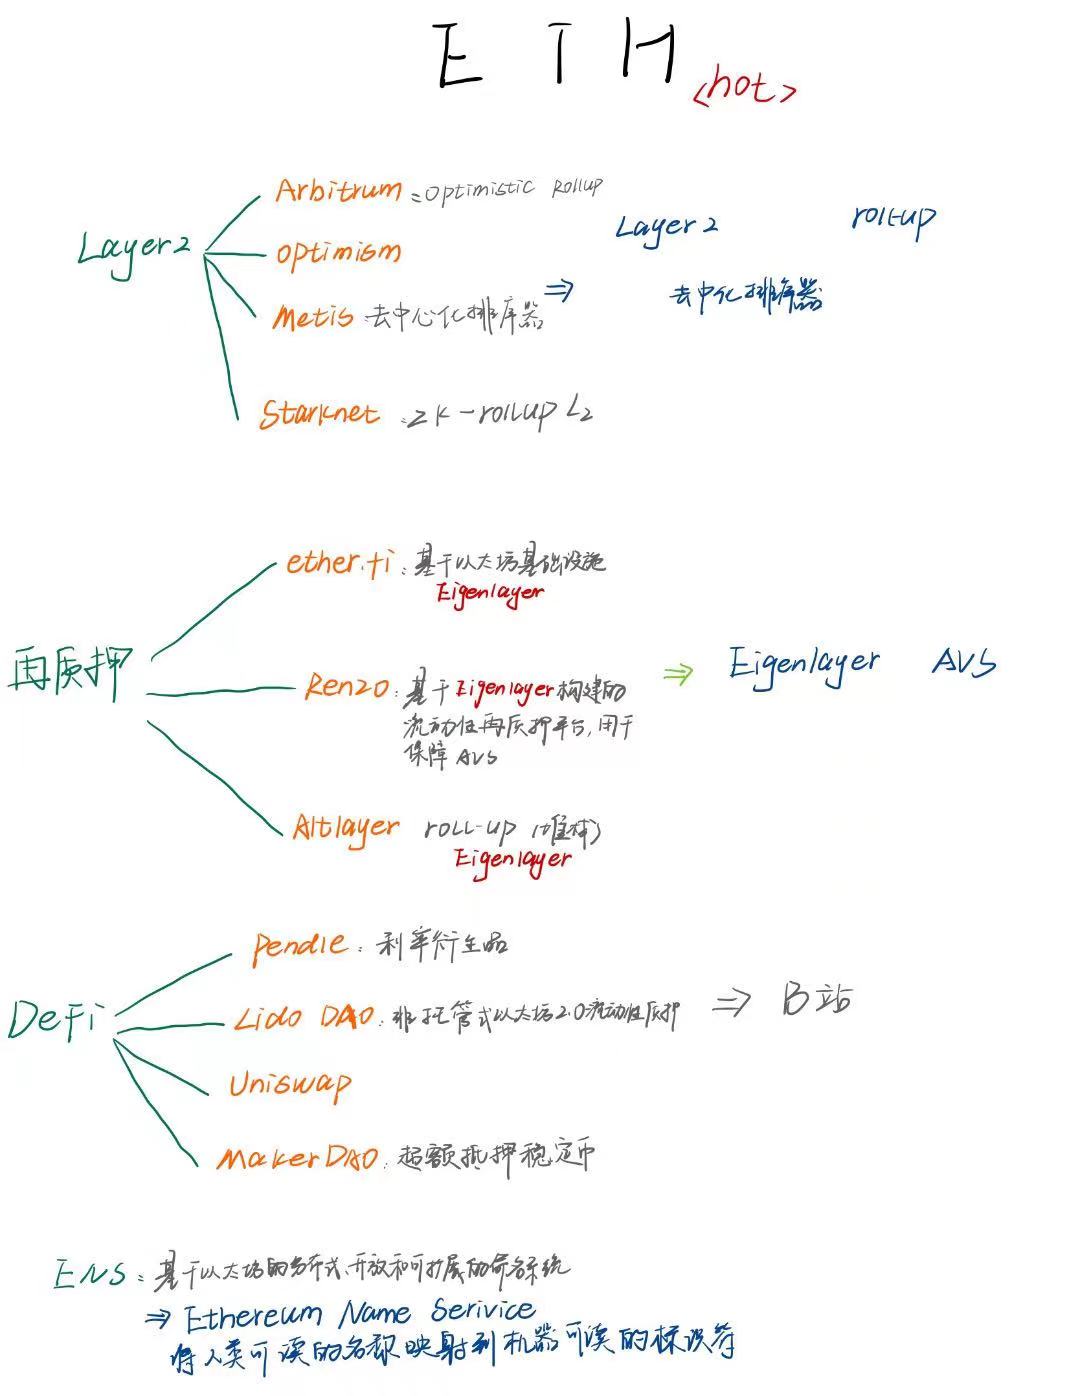 ETH
<hot>
Arbitrum : Optimistic Rollup
Layer2
Optimism
Metis : 去中心化排序器
Starknet : ZK-rollup L2
⇒
Layer2 roll-up
去中化排序器
ether.fi : 基于以太坊基础设施
Eigenlayer
再质押
Renzo : 基于Eigenlayer构建的
流动性再质押平台,用于
保障 AVS
⇒ Eigenlayer AVS
Altlayer roll-up (堆栈)
Eigenlayer
Pendle : 利率衍生品
DeFi
Lido DAO : 非托管式以太坊2.0流动性质押 ⇒ B站
Uniswap
MakerDAO : 超额抵押稳定币
ENS : 基于以太坊的分布式、开放和可扩展的命名系统
⇒ Ethereum Name Serivice
将人类可读的名称映射到机器可读的标识符